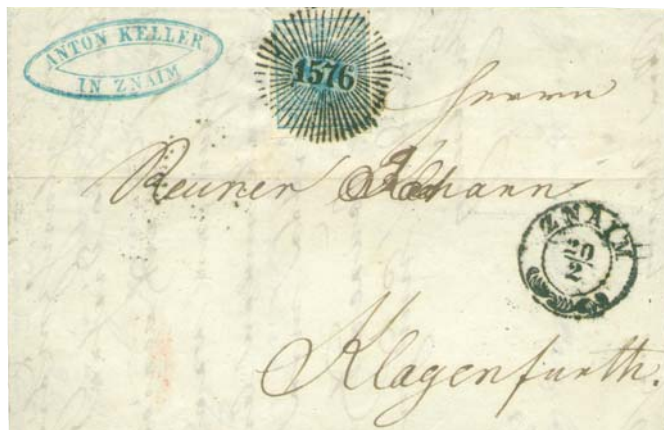 ANTON KELLER
IN ZNAIM
1576
Herrn
Johann
ZNAIM
20
2
Klagenfurth.